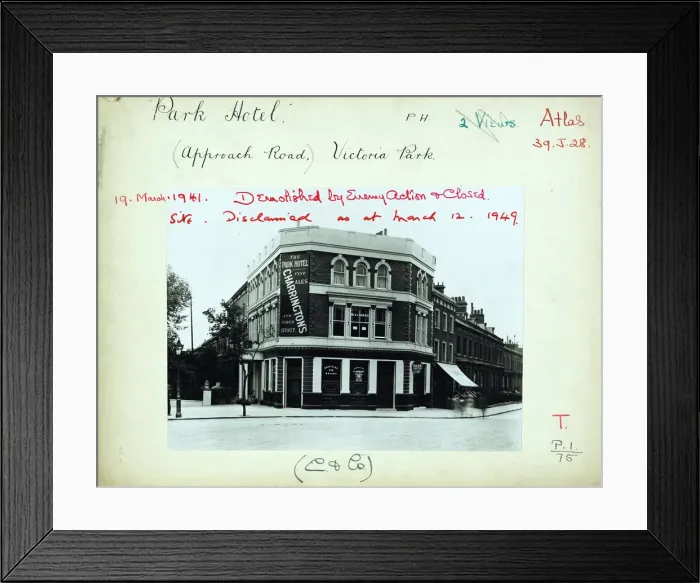 Park Hotel.
P.H.
2 Views.
Atlas
39.J.28.
(Approach Road,) Victoria Park.
19. March. 1941. Demolished by Enemy Action & Closed.
Site. Disclaimed as at March 12. 1949.
THE
PARK HOTEL
FINE
ALES
CHARRINGTONS
AND
STOUT
BILLIARDS
T.
P.1.
75
(C. & Co)